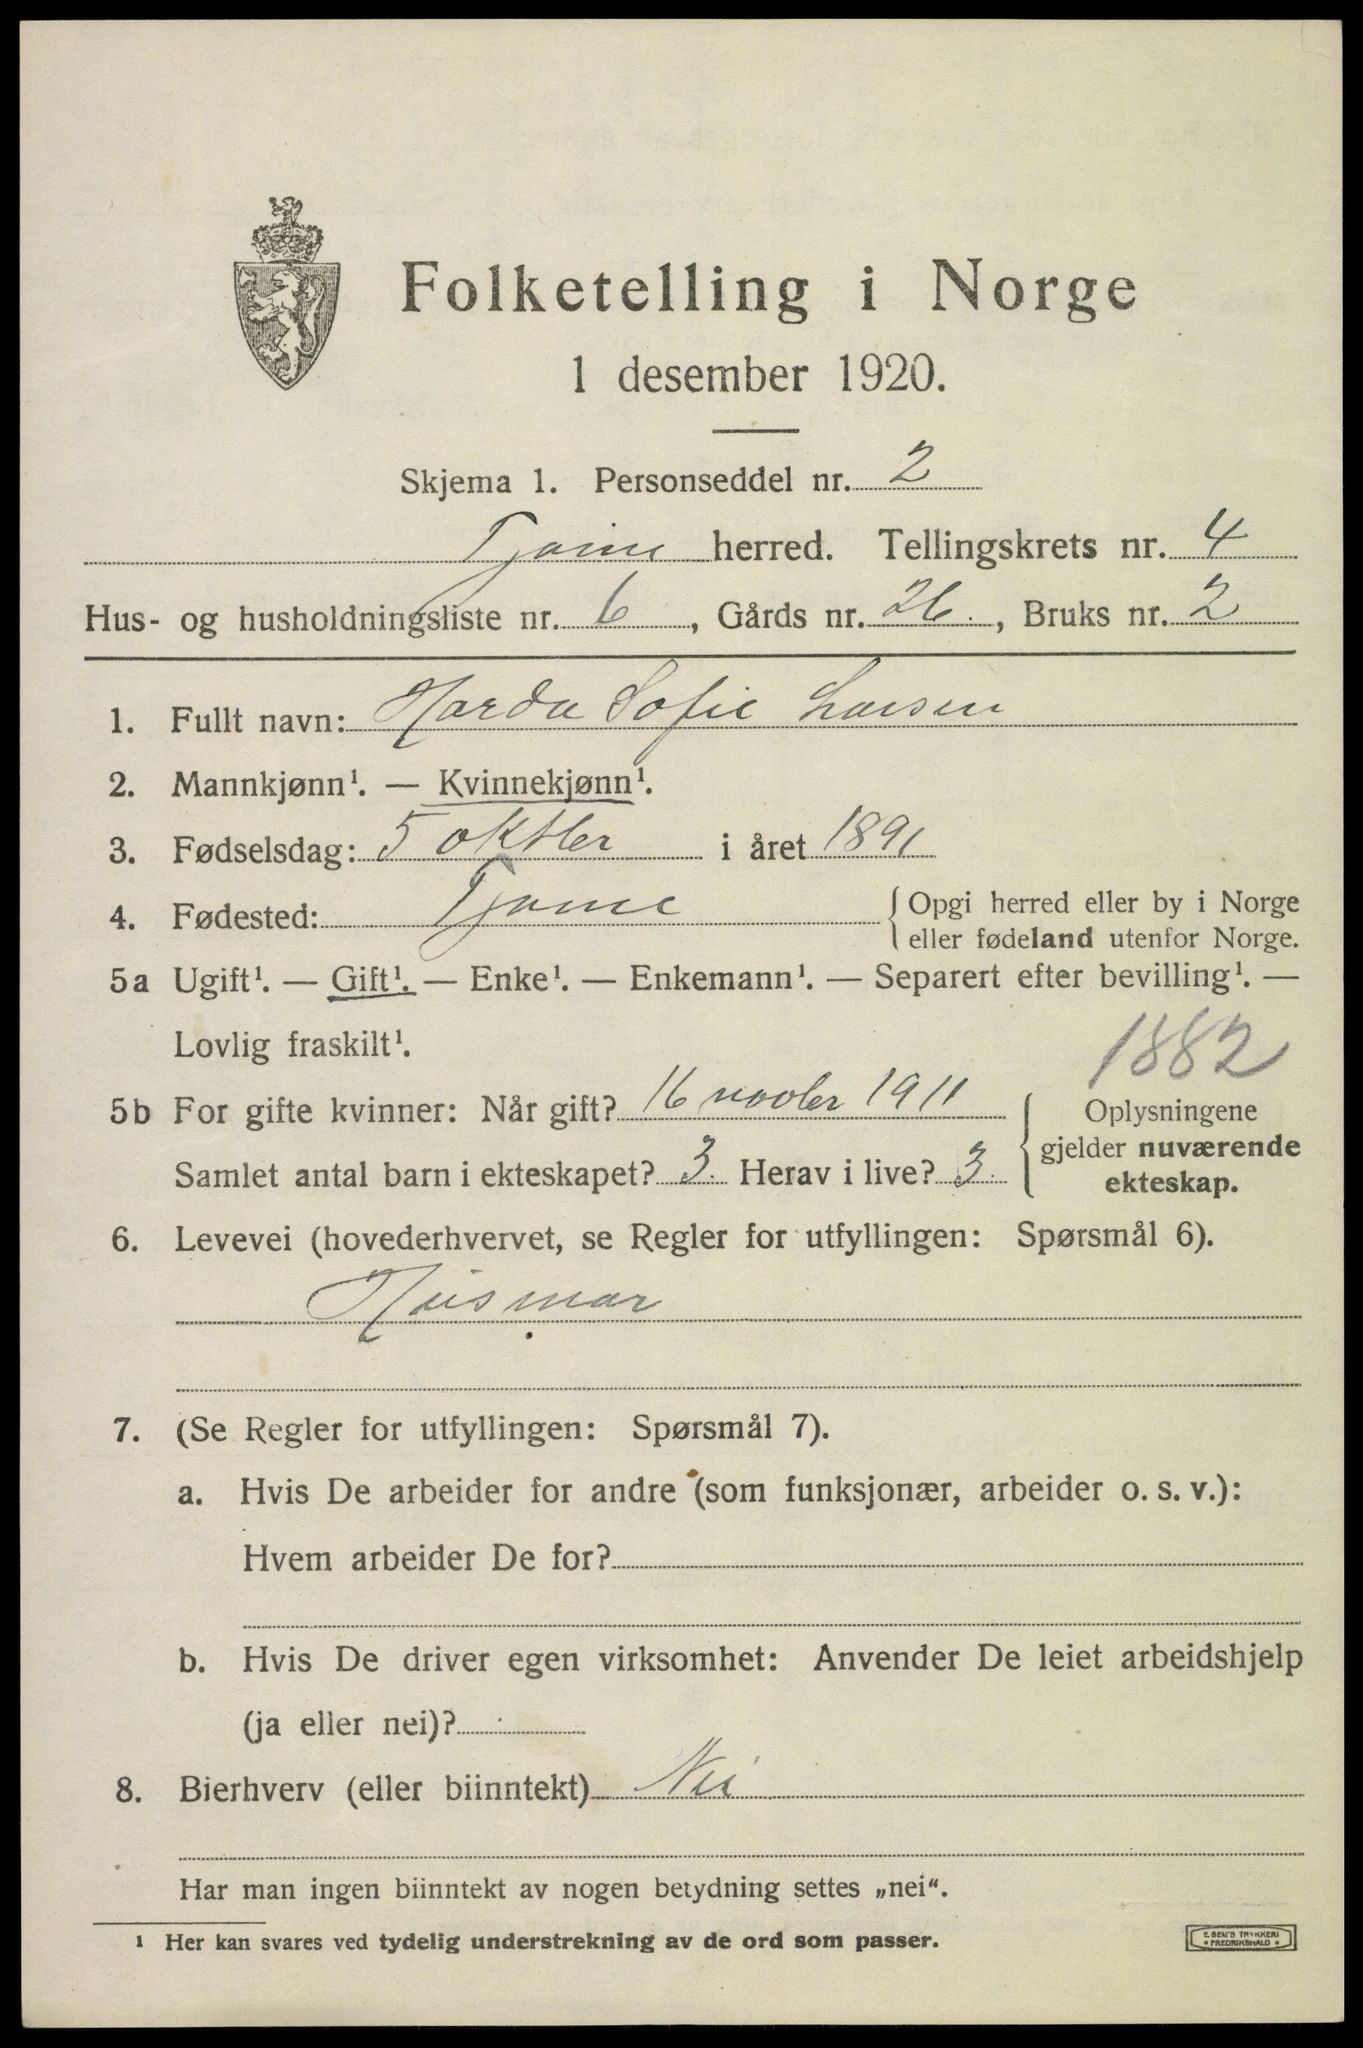 Folketelling i Norge
1 desember 1920.
Skjema 1. Personseddel nr. 2
Tjøme herred. Tellingskrets nr. 4
Hus- og husholdningsliste nr. 6, Gårds nr. 26., Bruks nr. 2
1. Fullt navn: Harda Sofie Larsen
2. Mannkjønn¹. — Kvinnekjønn¹.
3. Fødselsdag: 5 oktber i året 1891
4. Fødested: Tjøme { Opgi herred eller by i Norge
eller fødeland utenfor Norge.
5a Ugift¹. — Gift¹. — Enke¹. — Enkemann¹. — Separert efter bevilling¹. —
Lovlig fraskilt¹.
1882
5b For gifte kvinner: Når gift? 16 novbr 1911 { Oplysningene
gjelder nuværende
Samlet antal barn i ekteskapet? 3. Herav i live? 3. ekteskap.
6. Levevei (hovederhvervet, se Regler for utfyllingen: Spørsmål 6).
Husmor
7. (Se Regler for utfyllingen: Spørsmål 7).
a. Hvis De arbeider for andre (som funksjonær, arbeider o. s. v.):
Hvem arbeider De for?
b. Hvis De driver egen virksomhet: Anvender De leiet arbeidshjelp
(ja eller nei)?
8. Bierhverv (eller biinntekt) Nei
Har man ingen biinntekt av nogen betydning settes „nei“.
¹ Her kan svares ved tydelig understrekning av de ord som passer.
E. SEM'S TRYKKERI
* FREDRIKSHALD *